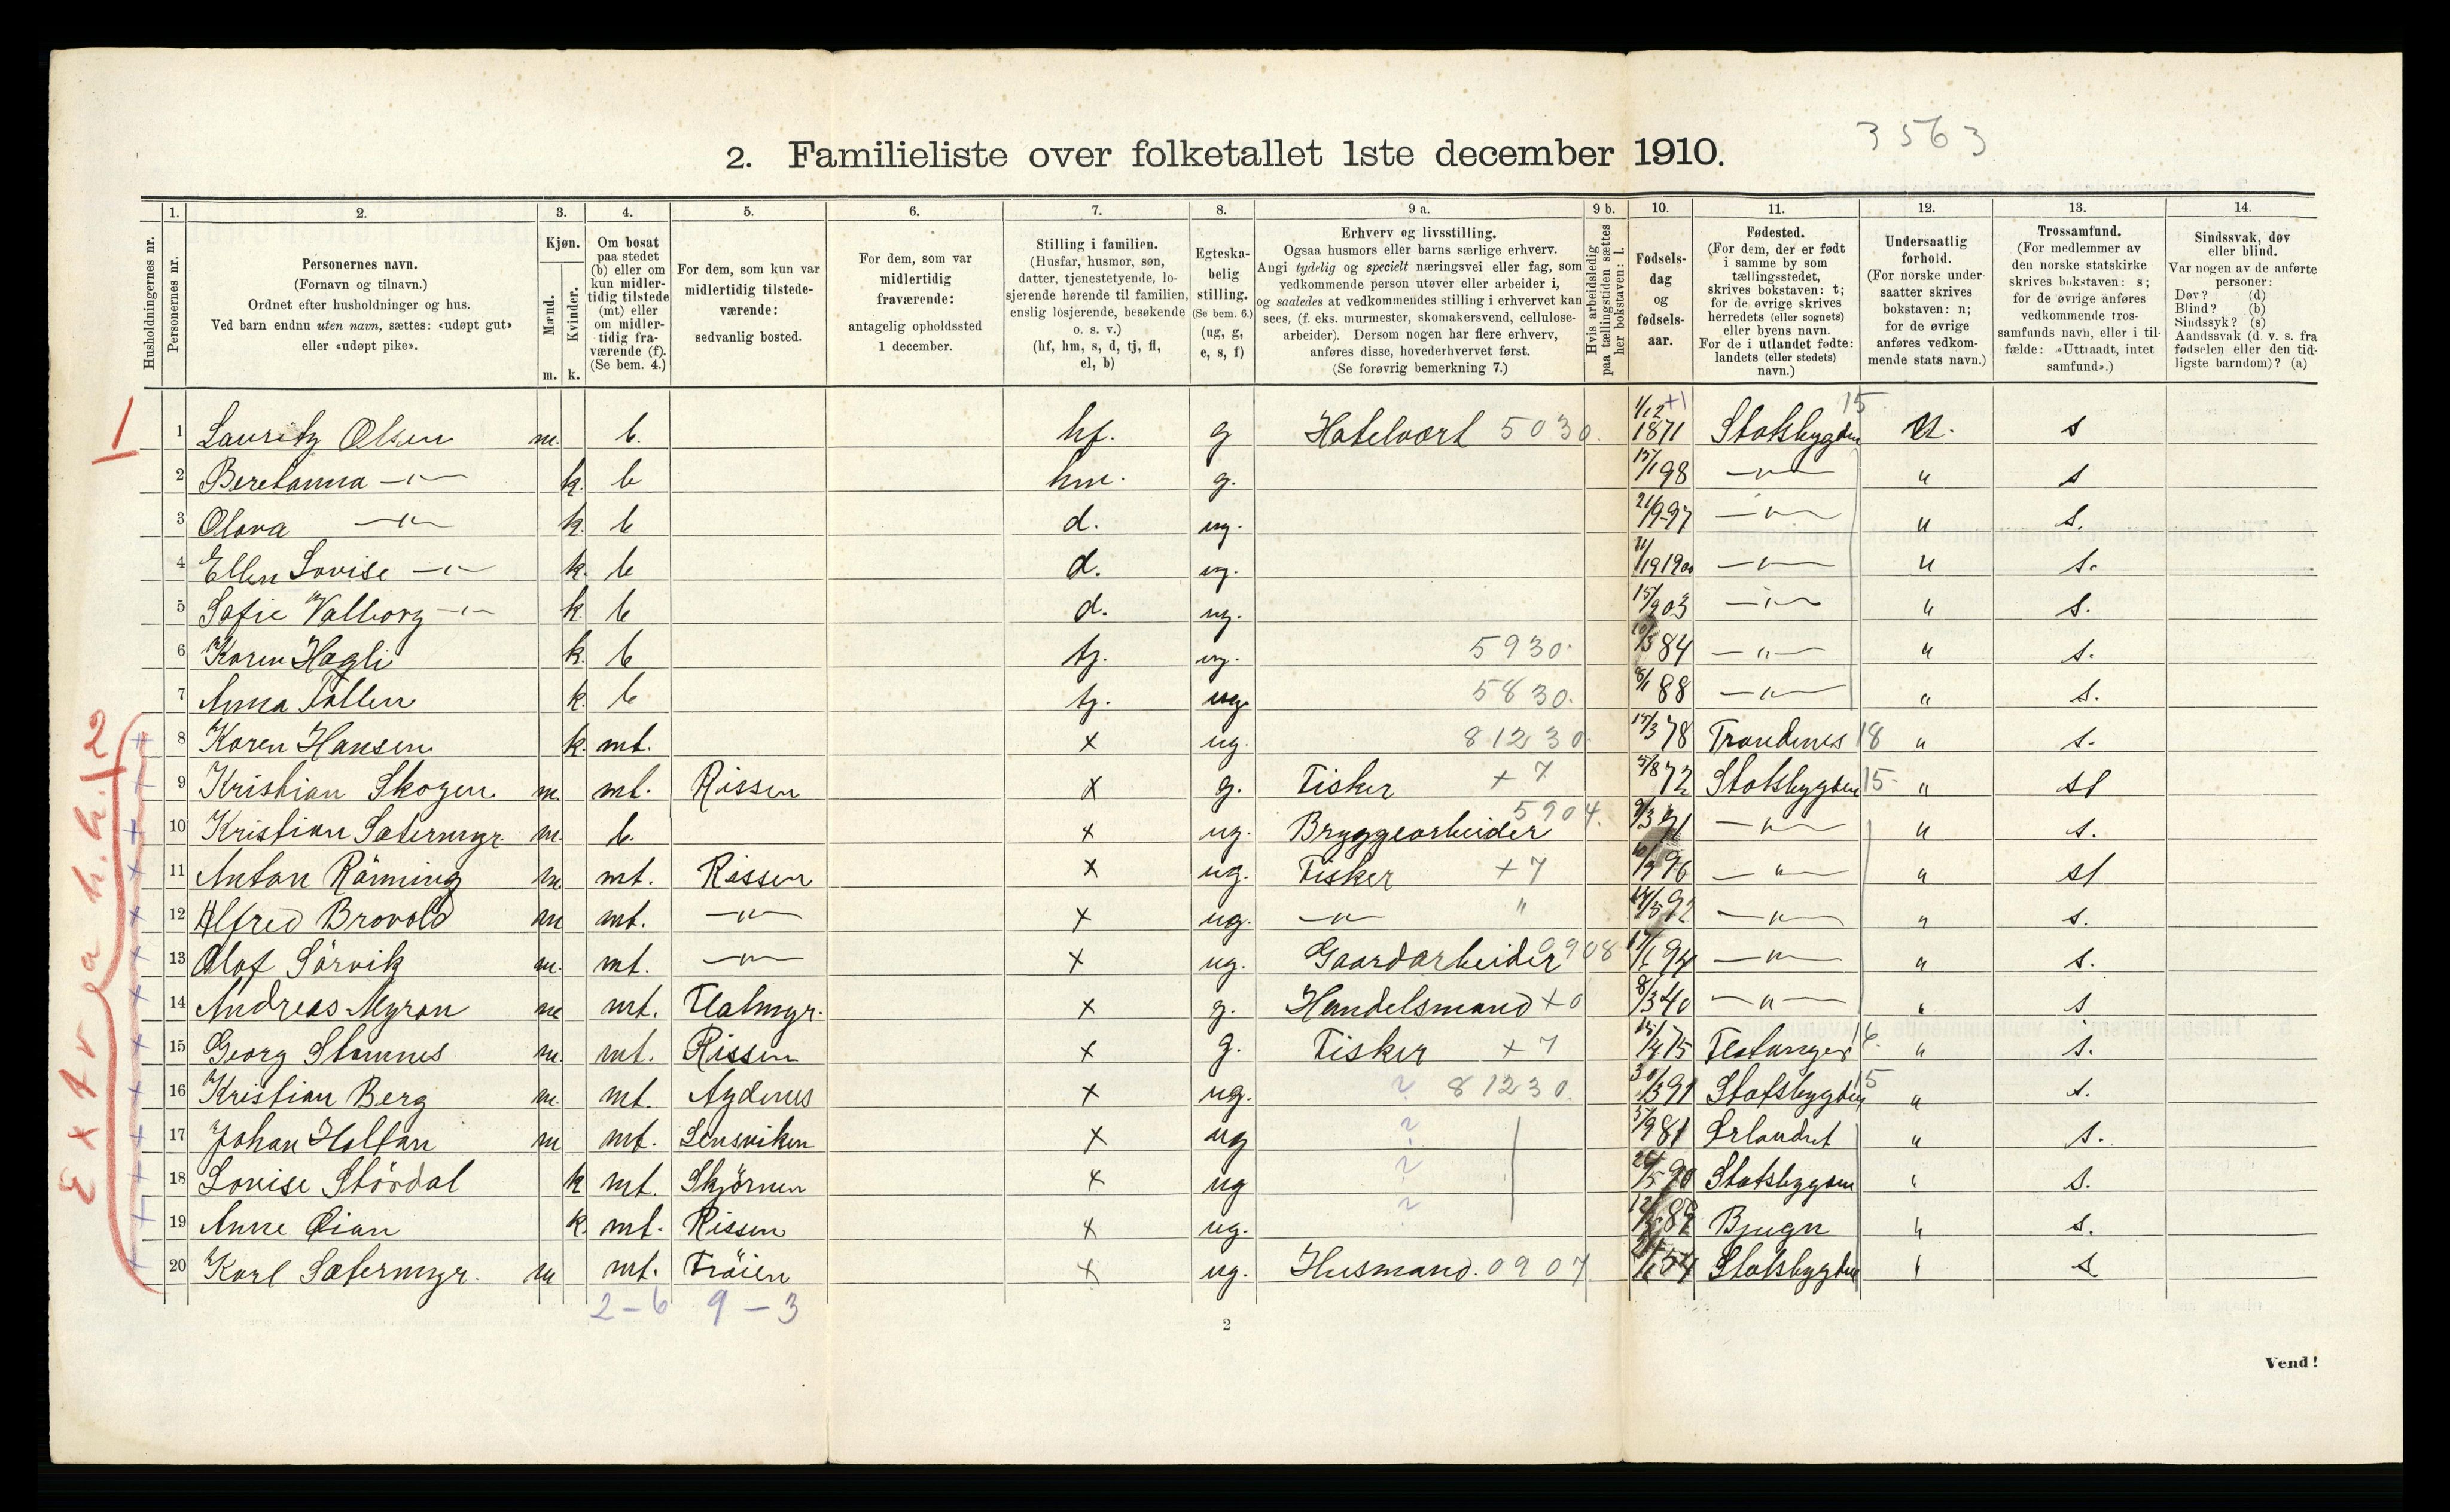 3563
2. Familieliste over folketallet 1ste december 1910.
Husholdningernes nr.
1. Personernes nr.
2. Personernes navn. (Fornavn og tilnavn.) Ordnet efter husholdninger og hus. Ved barn endnu uten navn, sættes: «udøpt gut» eller «udøpt pike».
3. Kjøn. Mænd. m. Kvinder. k.
4. Om bosat paa stedet (b) eller om kun midlertidig tilstede (mt) eller om midlertidig fraværende (f). (Se bem. 4.)
5. For dem, som kun var midlertidig tilstedeværende: sedvanlig bosted.
6. For dem, som var midlertidig fraværende: antagelig opholdssted 1 december.
7. Stilling i familien. (Husfar, husmor, søn, datter, tjenestetyende, losjerende hørende til familien, enslig losjerende, besøkende o. s. v.) (hf, hm, s, d, tj, fl, el, b)
8. Egteskabelig stilling. (Se bem. 6.) (ug, g, e, s, f)
9 a. Erhverv og livsstilling. Ogsaa husmors eller barns særlige erhverv. Angi tydelig og specielt næringsvei eller fag, som vedkommende person utøver eller arbeider i, og saaledes at vedkommendes stilling i erhvervet kan sees, (f. eks. murmester, skomakersvend, cellulosearbeider). Dersom nogen har flere erhverv, anføres disse, hovederhvervet først. (Se forøvrig bemerkning 7.)
9 b. Hvis arbeidsledig paa tællingstiden sættes her bokstaven: l.
10. Fødselsdag og fødselsaar.
11. Fødested. (For dem, der er født i samme by som tællingsstedet, skrives bokstaven: t; for de øvrige skrives herredets (eller sognets) eller byens navn. For de i utlandet fødte: landets (eller stedets) navn.)
12. Undersaatlig forhold. (For norske undersaatter skrives bokstaven: n; for de øvrige anføres vedkommende stats navn.)
13. Trossamfund. (For medlemmer av den norske statskirke skrives bokstaven: s; for de øvrige anføres vedkommende trossamfunds navn, eller i tilfælde: «Uttraadt, intet samfund».)
14. Sindssvak, døv eller blind. Var nogen av de anførte personer: Døv? (d) Blind? (b) Sindssyk? (s) Aandssvak (d. v. s. fra fødselen eller den tidligste barndom)? (a)
1 Lauritz Olsen m. b. hf. g Hotelvært 5030. 1/12 1871 Statsbygden 15 n. s
2 Beretanna —"— k. b hm. g. 15/1 98 —"— " s
3 Olava —"— k. b d. ug. 21/9-97 —"— " s.
4 Ellen Lovise —"— k. b d. ug. 1900 —"— " s.
5 Sofie Valborg —"— k. b d. ug. 15/9 03 —"— " s.
6 Karen Hagli k. b tj. ug. 5930. 84 —"— " s.
7 Anna Fallen k. b tj. ug 5830. 8/1 88 —"— " s.
8 Karen Hansen k. mt. x ug. 81230. 15/3 78 Trondenes 18 " s.
9 Kristian Skogen m. mt. Rissen x g. Fisker +7 5/8 72 Statsbygden 15 " st
10 Kristian Sætermyr. m. b. x ug. Bryggearbeider 5904. —"— " s.
11 Anton Rönning m mt. Rissen x ug. Fisker +7 96 —"— " st
12 Alfred Brovold m mt. —"— x ug. —"— " 92 —"— " s.
13 Olaf Sörvik m. mt. —"— x ug. Gaardarbeider 9908 94 —"— " s.
14 Andreas Myran m mt. x g. Handelsmand +0 8/3 40 —"— " s
15 Georg Stamnes m. mt. Rissen x g. Fisker +7 75 Flatanger " s.
16 Kristian Berg m. mt. Agdenes x ug. ? 81230. 30/3 91 Statsbygden 15 " s.
17 Johan Holtan m mt. Lensviken x ug ? 5/9 81 Ørlandet " s.
18 Lovise Stördal k mt. Skjörnen x ug ? 90 Statsbygden " s.
19 Anne Oian k. mt. Rissen x ug. ? Bjugn " s.
20 Karl Sætermyr. m mt. Fröien x ug. Husmand. 0907 54 Statsbygden " s
Extra h.h. 2
2-6 9-3
2
Vend!